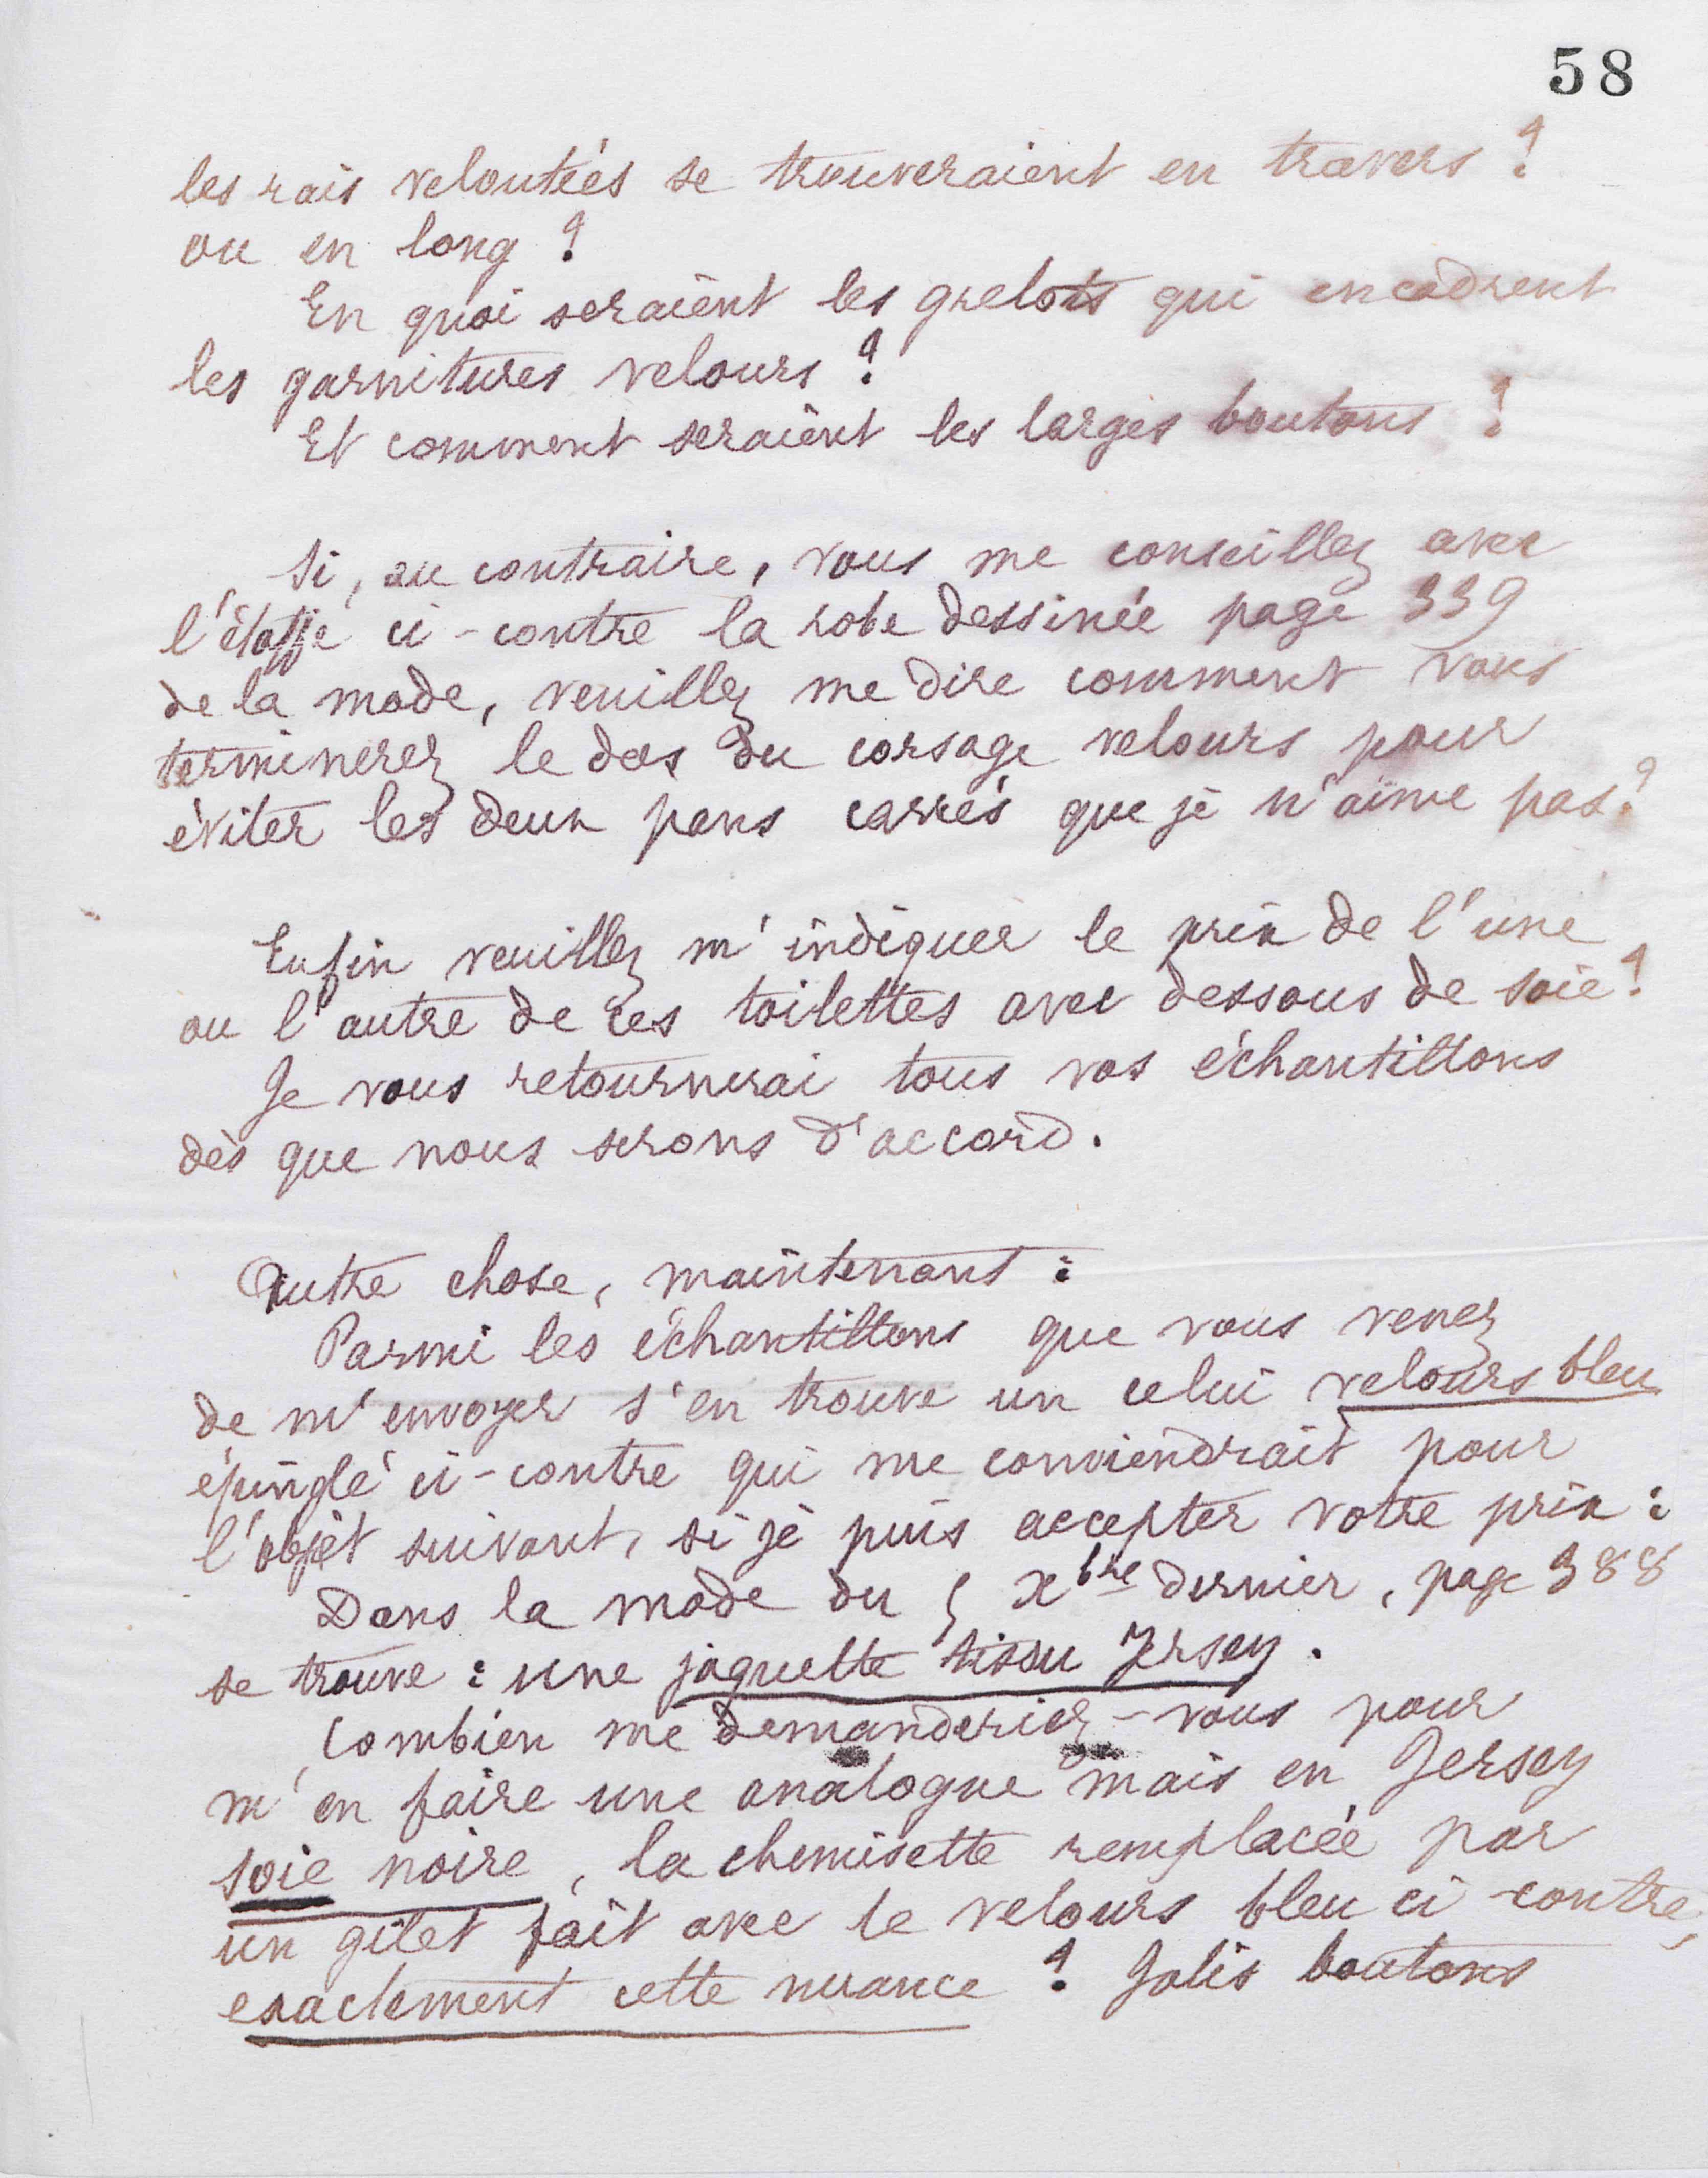 58
les rais veloutées se trouveraient en travers ?
ou en long ?
En quoi seraient les grelots qui encadrent
les garnitures velours ?
Et comment seraient les larges boutons ?
Si, au contraire, vous me conseillez avec
l'étoffe ci-contre la robe dessinée page 339
de la mode, veuillez me dire comment vous
terminerez le dos du corsage velours pour
éviter les deux pans carrés que je n'aime pas ?
Enfin veuillez m'indiquer le prix de l'une
ou l'autre de ces toilettes avec dessous de soie ?
Je vous retournerai tous vos échantillons
dès que nous serons d'accord.
Autre chose, maintenant :
Parmi les échantillons que vous venez
de m'envoyer s'en trouve un celui velours bleu
épinglé ci-contre qui me conviendrait pour
l'objet suivant, si je puis accepter votre prix :
Dans la mode du xbre dernier, page 388
se trouve : une jaquette tissu Jersey.
Combien me demanderiez-vous pour
m'en faire une analogue mais en Jersey
soie noire, la chemisette remplacée par
un gilet fait avec le velours bleu ci-contre,
exactement cette nuance ? Jolis boutons